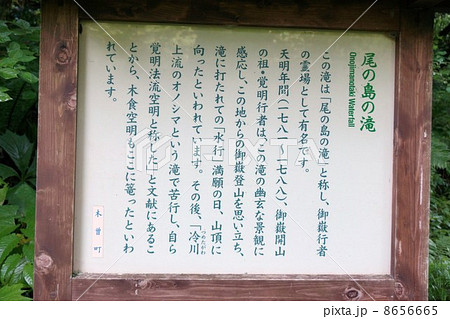 尾の島の滝
Onojimanotaki Waterfall
この滝は「尾の島の滝」と称し、御嶽行者
の霊場として有名です。
天明年間（一七八一～一七八八）、御嶽開山
の祖・覚明行者は、この滝の幽玄な景観に
感応し、この地からの御嶽登山を思い立ち、
滝に打たれての「水行」満願の日、山頂に
向ったといわれています。その後、「冷川
つめたがわ
上流のオノシマという滝で苦行し、自ら
覚明法流空明と称した」と文献にあるこ
とから、木食空明もここに篭ったといわ
れています。
木曽町
PIXTA
pixta.jp - 8656665